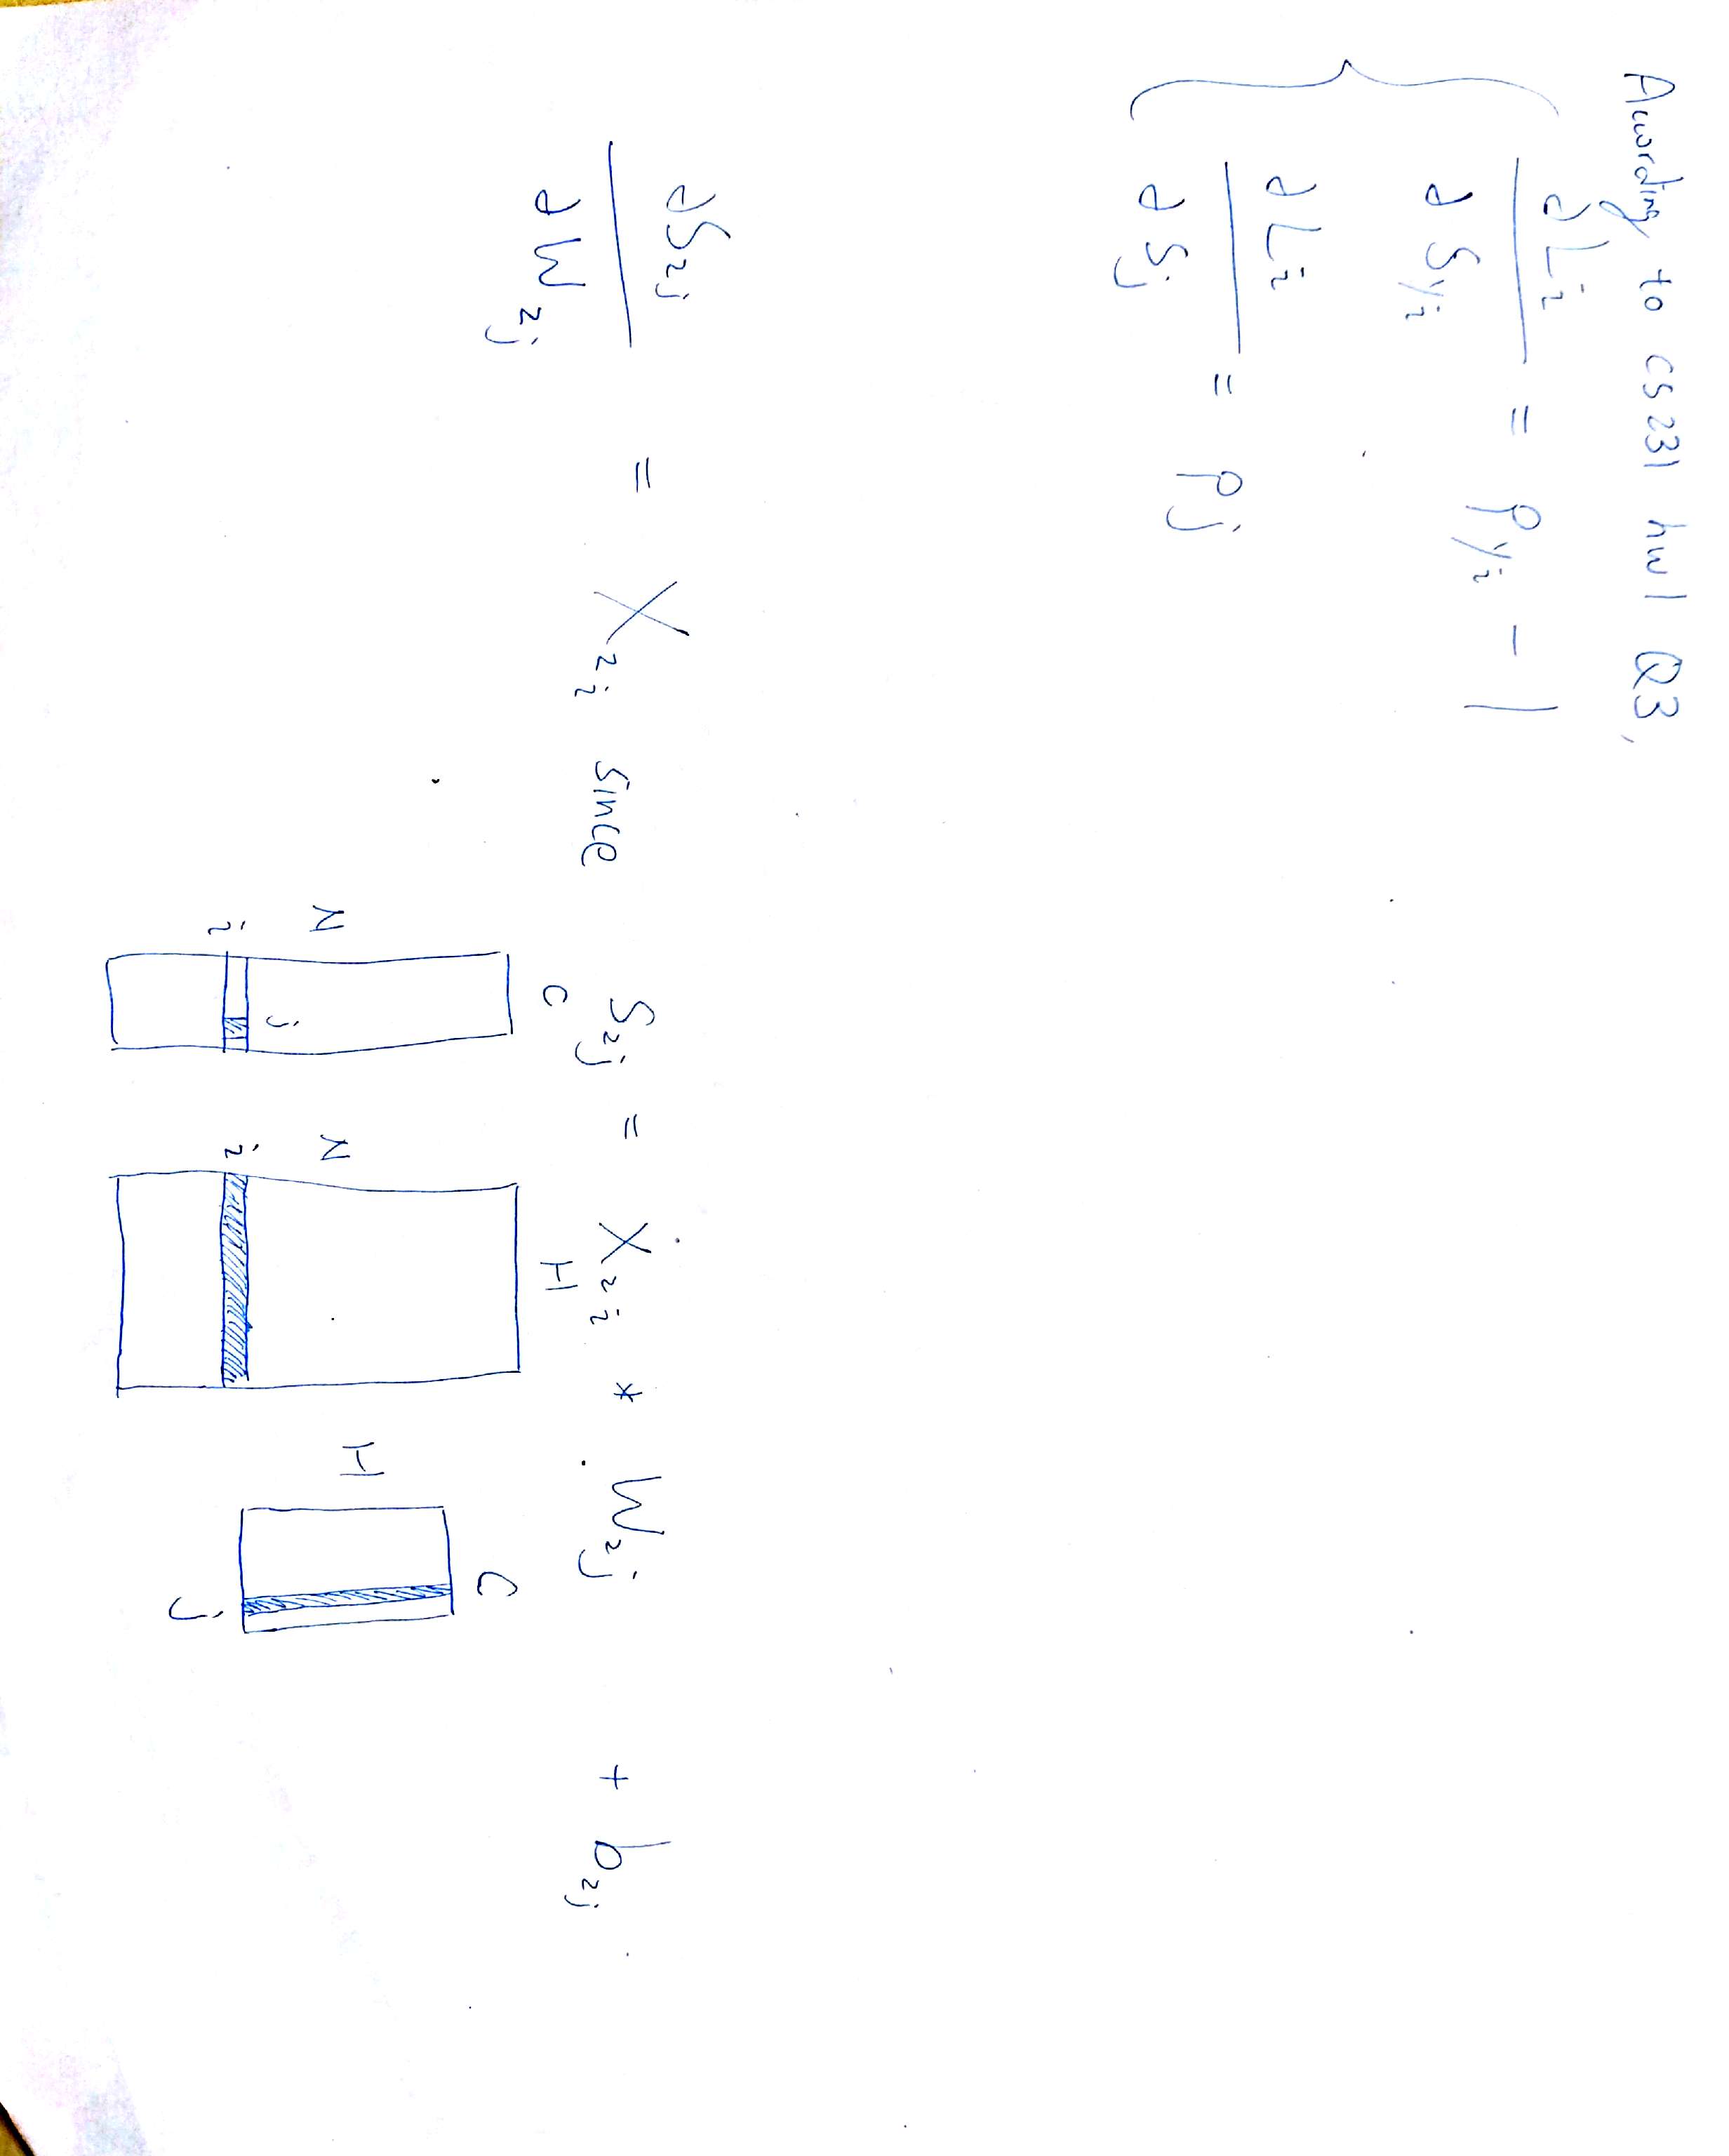 According to cs231 hw1 Q3,
∂Li / ∂Syi = Pyi - 1
∂Li / ∂Sj = Pj
∂S2j / ∂W2j = X2i since S2j = X2i * W2j + b2j
C H C
N N H
j
i i
j